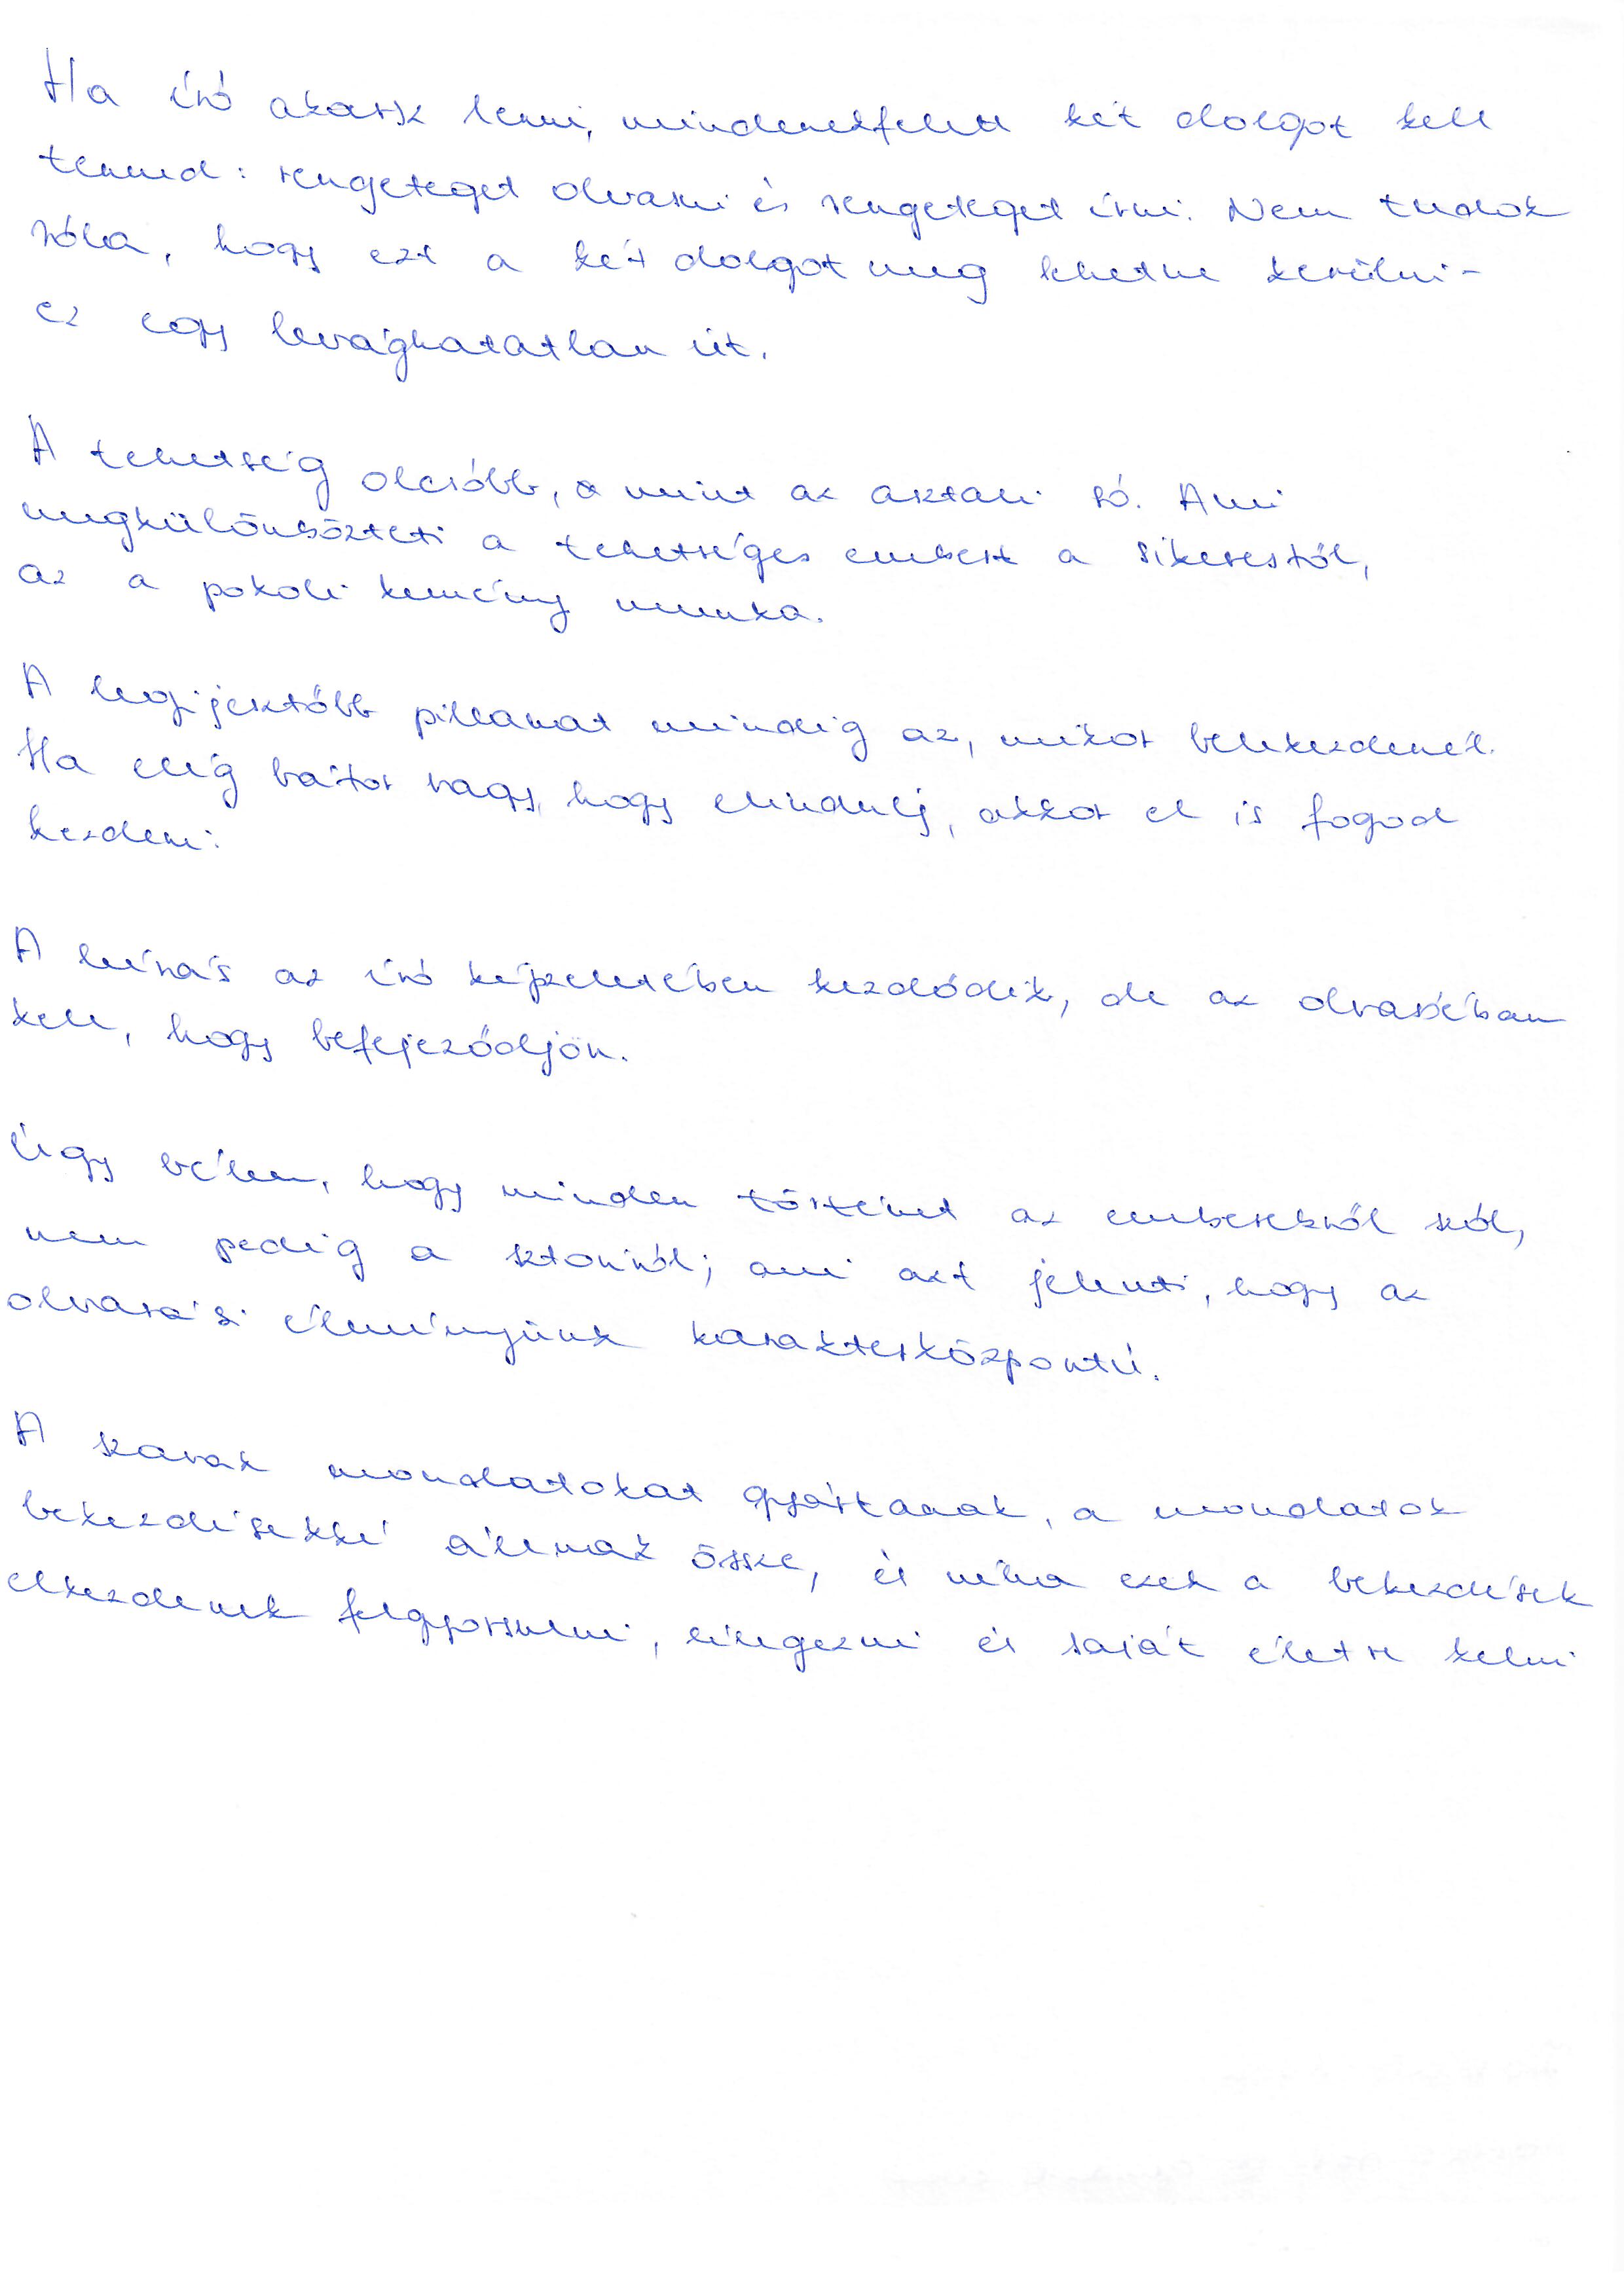 Ha író akarsz lenni, mindenekfelett két dolgot kell
tenned: rengeteget olvasni és rengeteget írni. Nem tudok
róla, hogy ezt a két dolgot meg lehetne kerülni -
ez egy levághatatlan út.
A tehetség olcsóbb, a mint az asztali só. Ami
megkülönbözteti a tehetséges embert a sikerestől,
az a pokoli kemény munka.
A legijesztőbb pillanat mindig az, mikor belekezdenél.
Ha elég bátor vagy, hogy elindulj, akkor el is fogod
kezdeni.
A leírás az író képzeletében kezdődik, de az olvasóéban
kell, hogy befejeződjön.
Úgy vélem, hogy minden történet az emberekről szól,
nem pedig a sztoriról; ami azt jelenti, hogy az
olvasási élményünk karakterközpontú.
A szavak mondatokat gyártanak, a mondatok
bekezdésekké állnak össze, és néha ezek a bekezdések
elkezdenek felgyorsulni, lélegezni és saját életre kelni